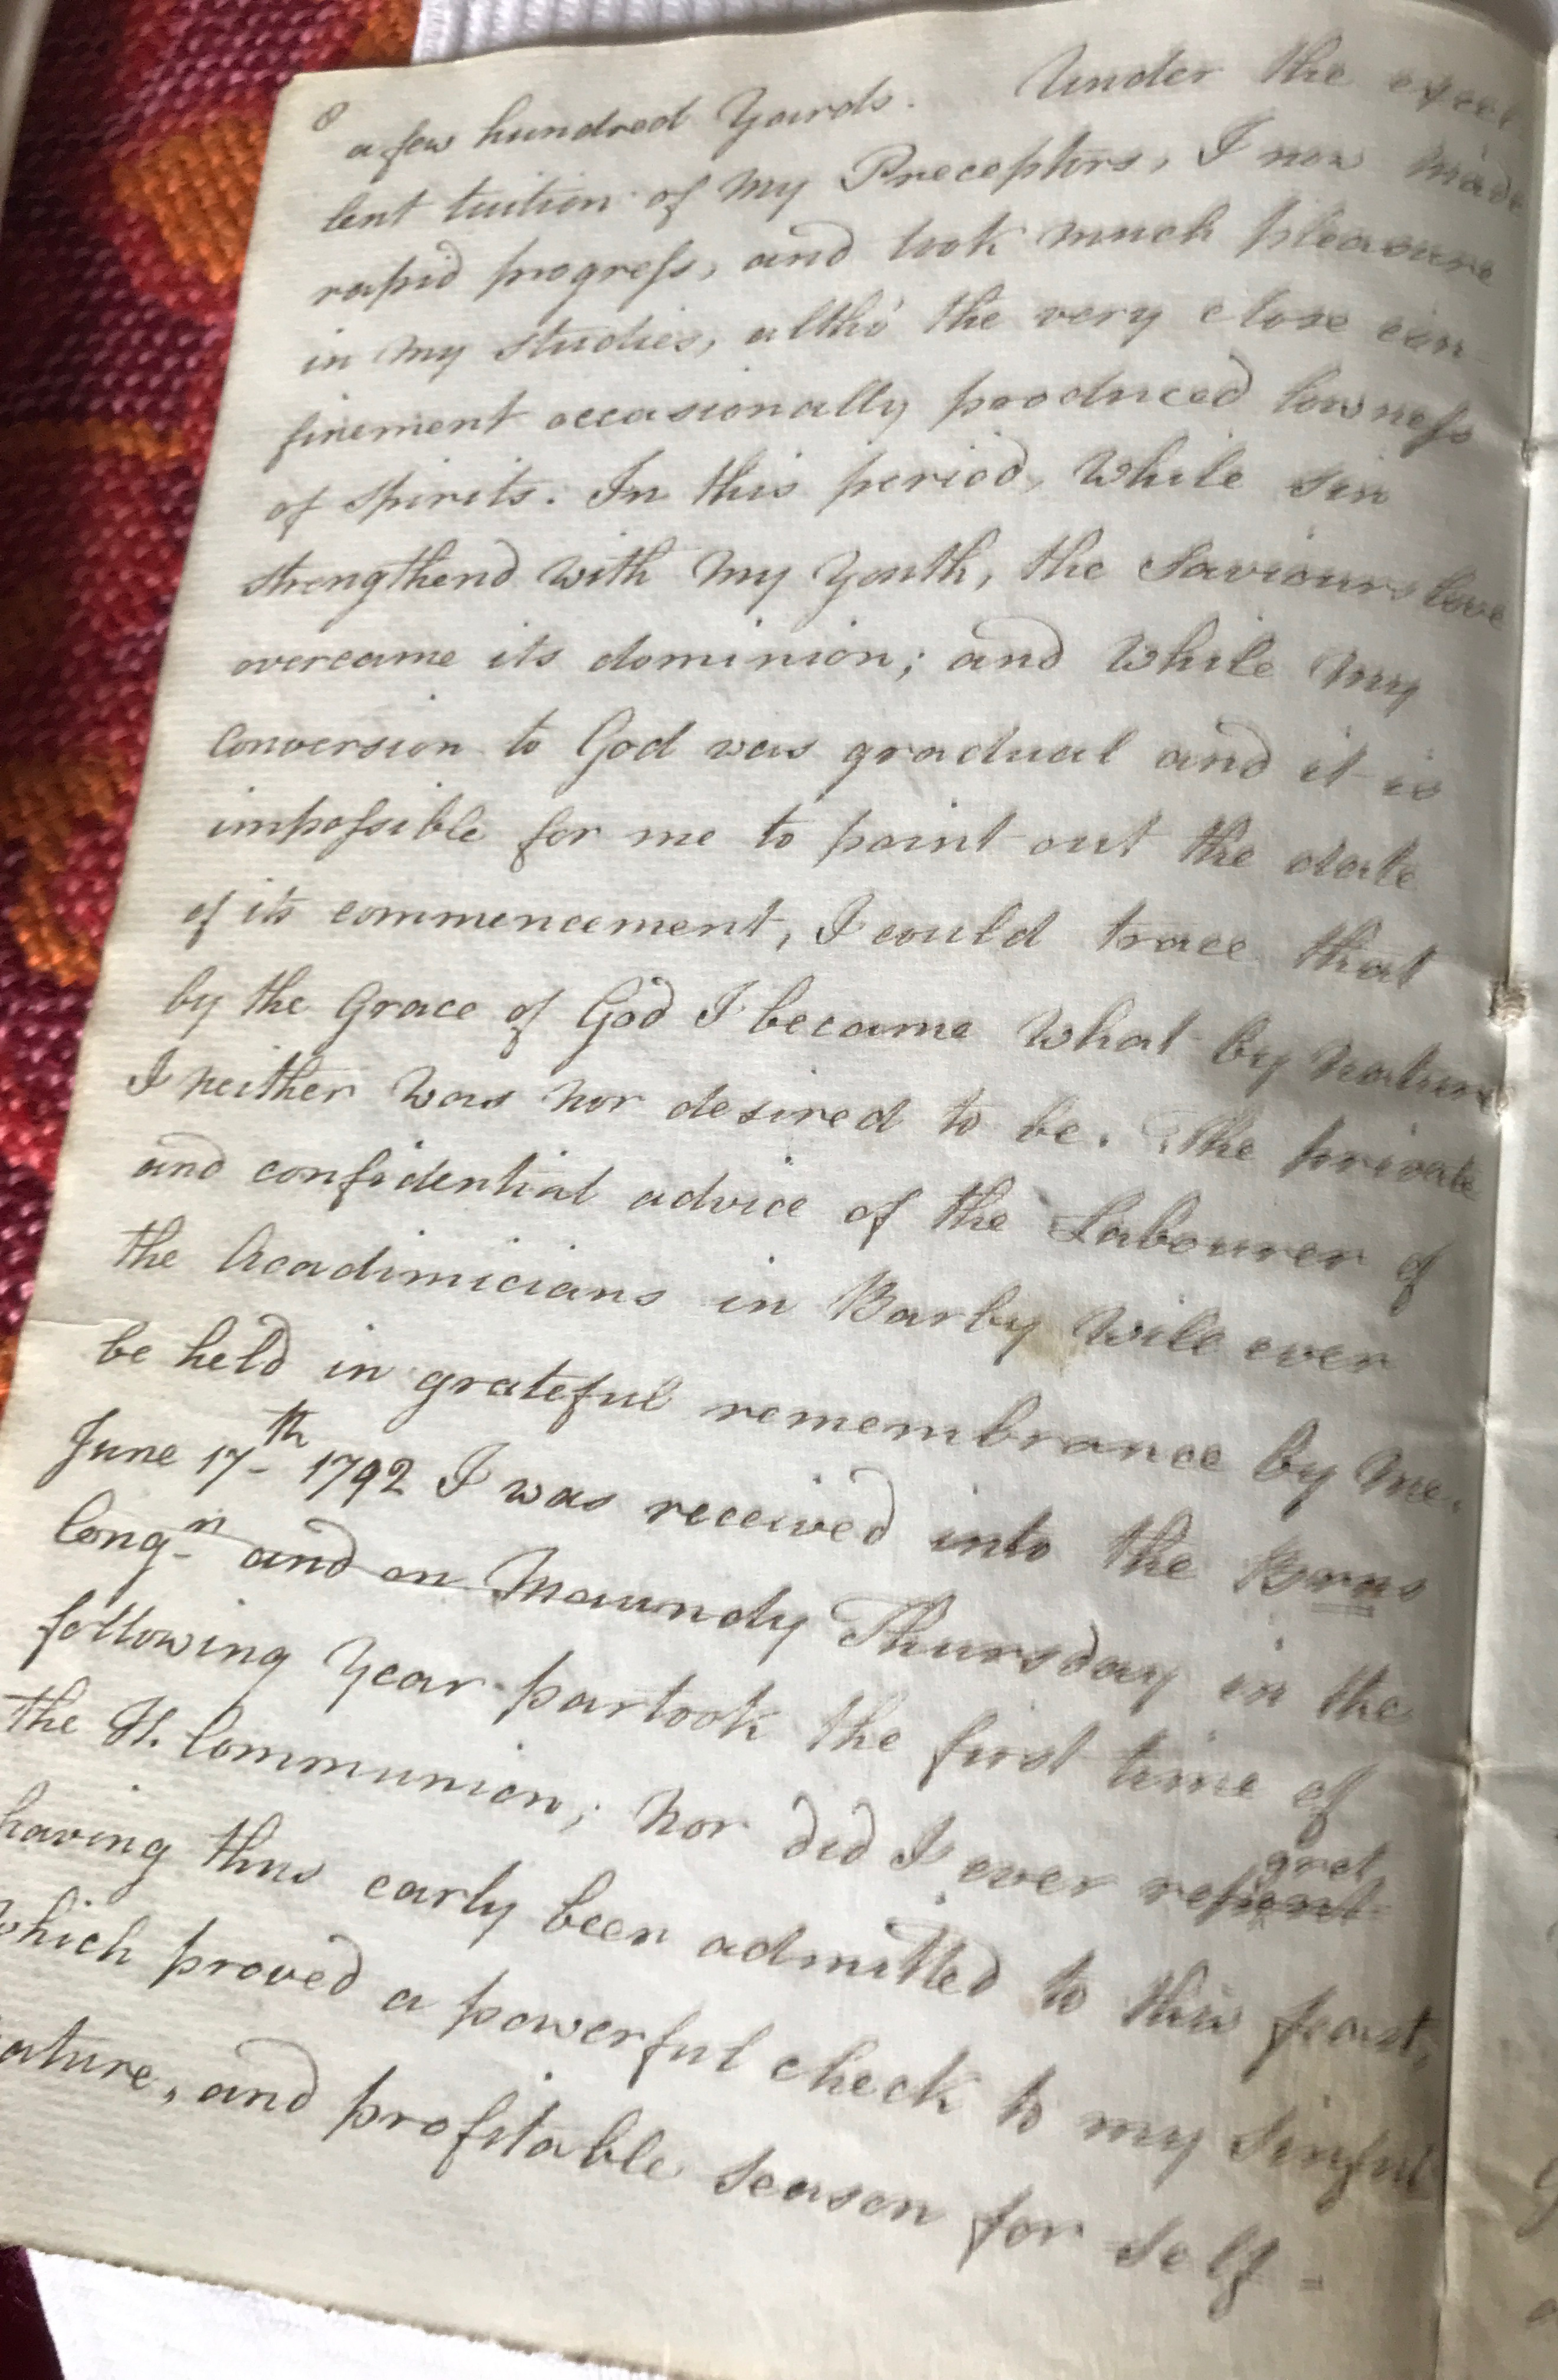 8
a few hundred Yards. Under the excel
lent tuition of my Preceptors, I now made
rapid progress, and took much pleasure
in my studies, altho' the very close con-
finement occasionally produced lowness
of spirits. In this period, while sin
strengthend with my Youth, the Saviours love
overcame its dominion; and while my
Conversion to God was gradual and it is
impossible for me to point out the date
of its commencement, I could trace that
by the Grace of God I became what by nature
I neither was nor desired to be. The private
and confidential advice of the Labourer of
the Acadimicians in Barby will ever
be held in grateful remembrance by me.
June 17th 1792 I was received into the Brns
Congn and on Maundy Thursday in the
following Year partook the first time of
the H. Communion; nor did I ever regret
having thus early been admitted to this feast,
which proved a powerful check to my sinful
nature, and profitable season for self-